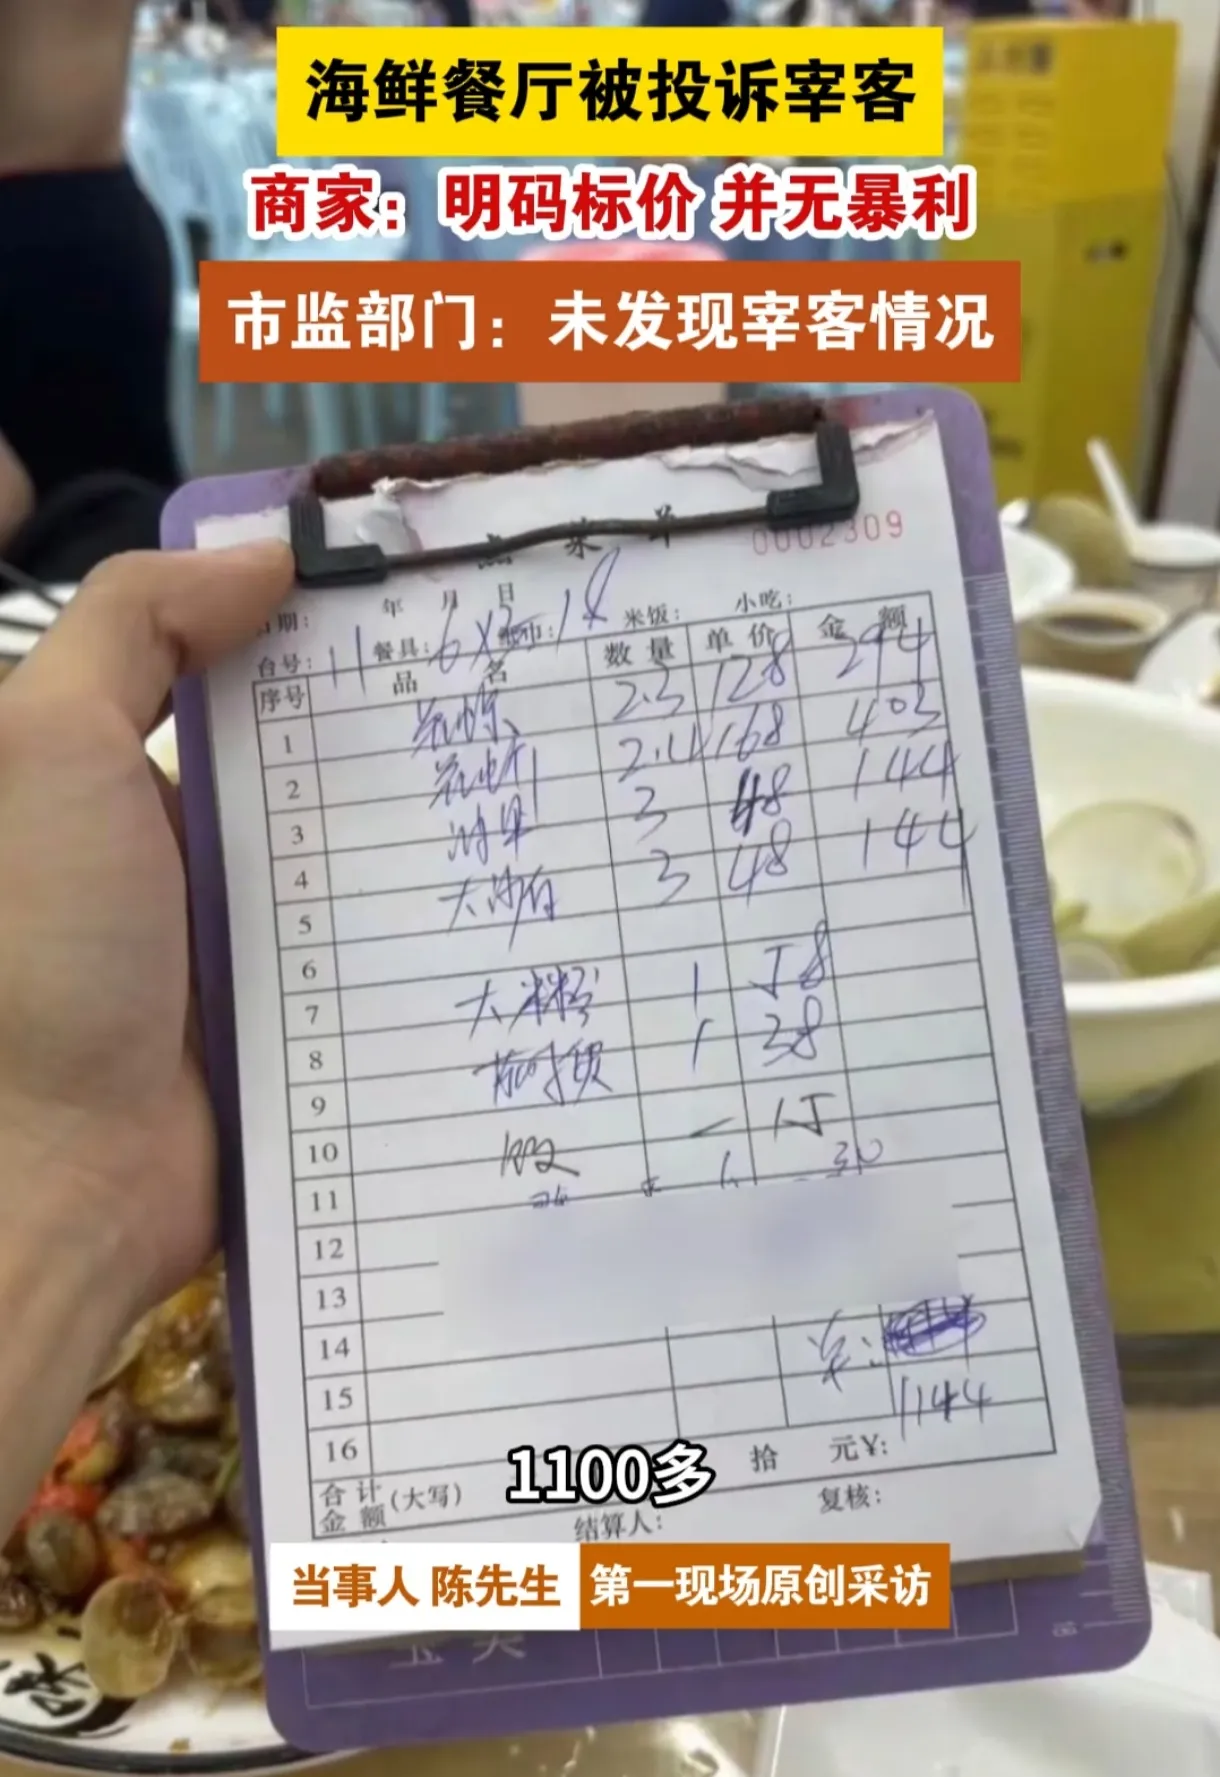 海鲜餐厅被投诉宰客
商家：明码标价 并无暴利
市监部门：未发现宰客情况
点菜单 0002309
日期： 年 月 日
台号：11 餐具：6×3 纸巾：18 米饭： 小吃：
序号 品名 数量 单价 金额
1 2.3 128 294
2 2.4 168 403
3 3 48 144
4 大沙白 3 48 144
5
6
7 大米粉 1 58
8 1 38
9
10 一 15
11 6 30
12
13
14
15 1144
16
合计金额 (大写) 拾 元¥：
结算人： 复核：
1100多
当事人 陈先生 第一现场原创采访